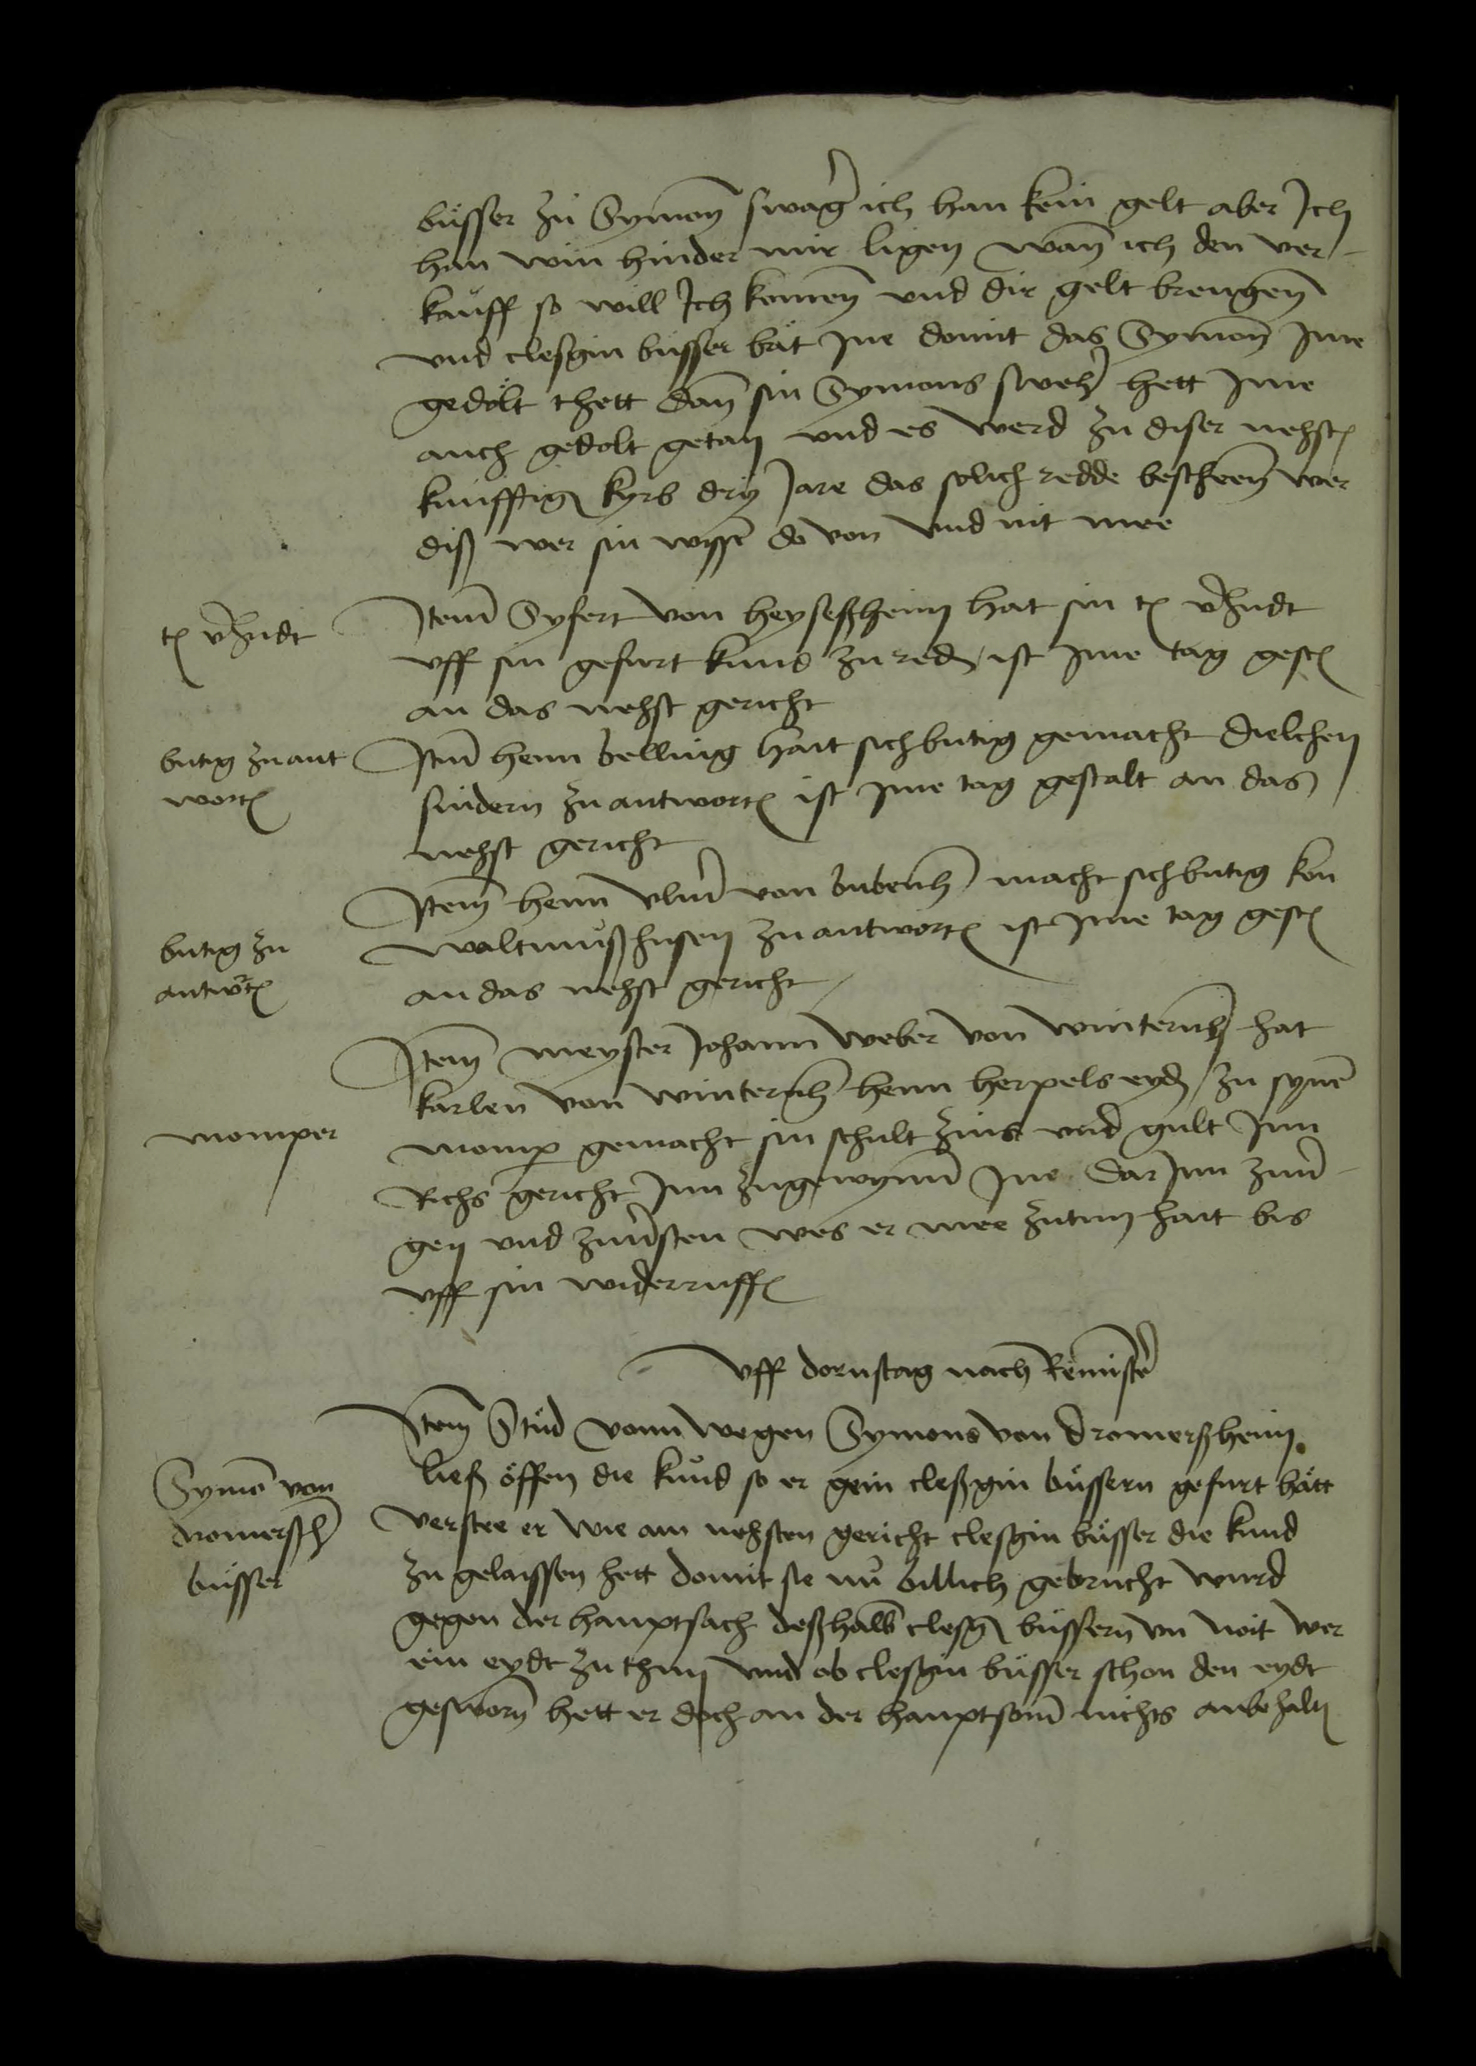 büsser zu Symon swag̾ ich han kein gelt aber Ich
han win hinder mir ligen wan̄ ich den ver-
kauff so will Ich komen̄ und dir gelt brengen̄
und clesgin büsser bät ine domit das Symon̄ Ime
gedölt thett dan̄ sin Symons sweh̾ hett Ime
auch gedolt getan und es werd zu diser nehst
kunfftig kyrb dry Jare das solich redde bescheen̄ wer
diß wer sin wissē do von und nit mee
tꝫ v̾kundt
Item̄ Syfert von heyseßheim hat sin tꝫ v̾kundt
uff sin gefurt kund zu red ist ime tag gest
an das nehst gericht
butig zu ant
wort
Itm̄ henn belling hait sich butig gemacht dielchen
snidern zu antwort ist ime tag gestalt an das
nehst gericht
butig zu
antwort
Item̄ henn ulm̄ von bubenh̄ macht sich butig kon
waltmußhusen zu antwort ist ime tag gest
an das nehst gericht
momper
Item̄ meyster Johann weber von winternh̄ hat
karlen von winternh̄ henn herpels eyd zu synē
momp gemacht sin schult zins und gult Inn
Richs gericht Inn zugewynn̄ Ine dar Inn zu
gen und zu sten wes er mee zutun hait bis
uff sin widerruffꝫ
uff dornstag nach Remisce̾
Symō von
dromerßh̾
büsser
Item̄ Stud vonn wegen Symons von dromerßheim
ließ öffen die kund so er gein cleßgin büssern gefurt hätt
verstee er wie am nehsten gericht clesgin büsser die kund
zu gelaissen hett domit sie nu billich gebrucht wurd
gegen der hauptsach deßhalb clesg büssern̄ un noit wer
ein eydt zu thun und ob clesgin büsser schon den eydt
gesworn̄ hett er doch an der hauptsom̄ nichts anbehalt